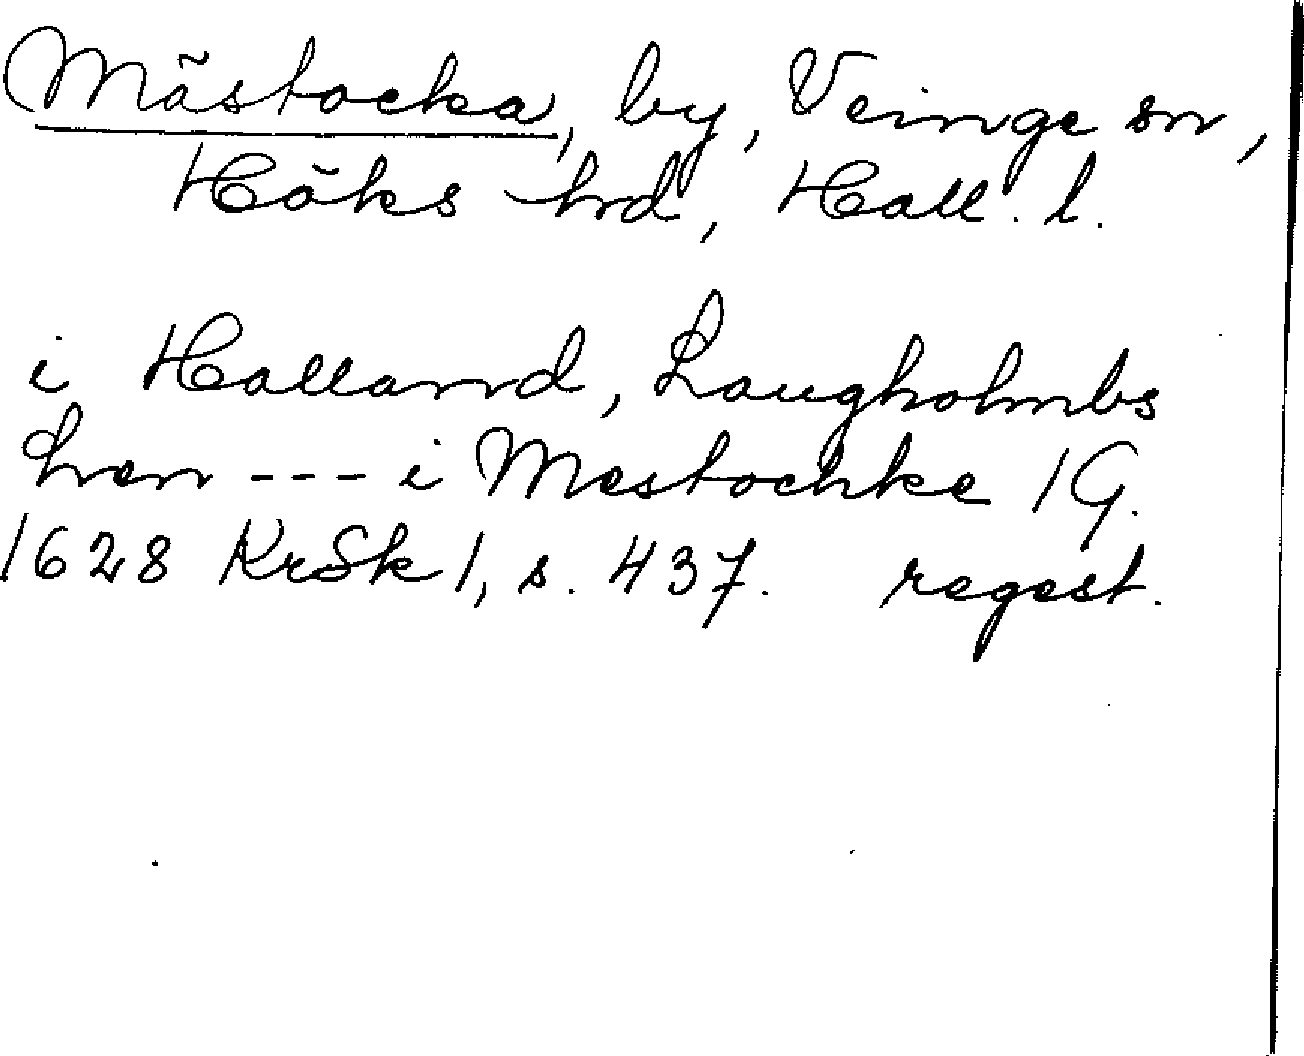 Mästocka, by, Veinge sn,
Höks hrd, Hall. l.
i Halland, Laugholmbs
Len --- i Mestochke 1 G.
1628 KrSk 1, s. 437. regest.